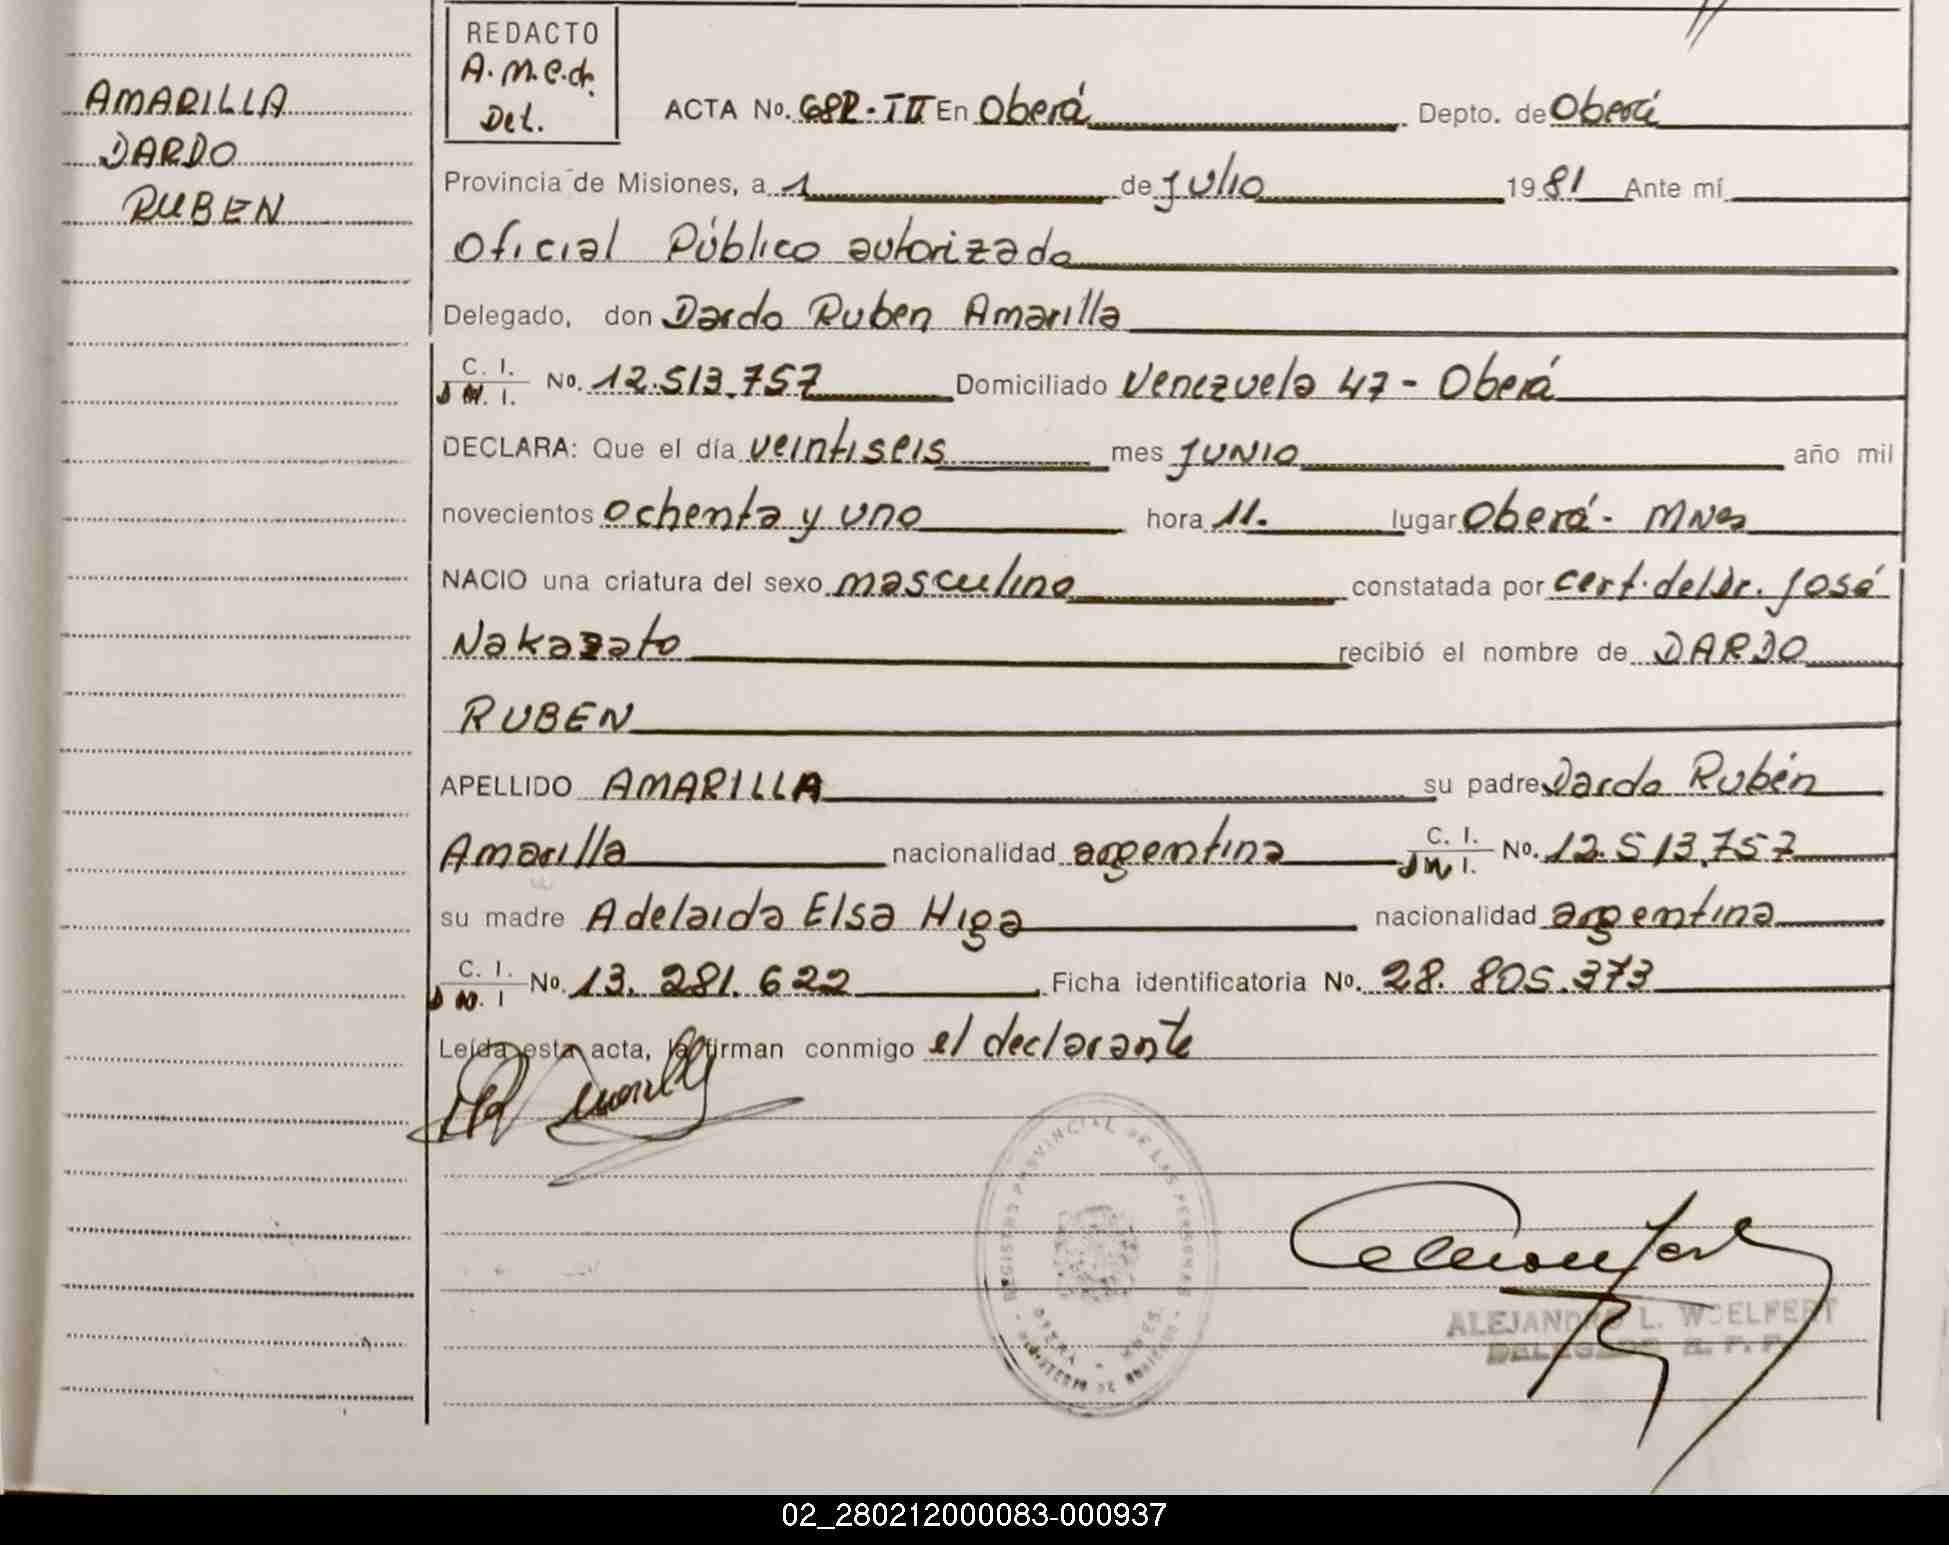 AMARILLA
DARDO
RUBEN
REDACTO
A.M.C.ch.
Del.
ACTA No. 682-III En Oberá Depto. de Oberá
Provincia de Misiones, a 1 de Julio 1981 Ante mí
Oficial Público autorizado
Delegado, don Dardo Ruben Amarilla
C. I.
D N. I. No. 12.513.757 Domiciliado Venezuela 47 - Oberá
DECLARA: Que el día veintiseis mes JUNIO año mil
novecientos ochenta y uno hora 11. lugar Oberá - Mnes
NACIO una criatura del sexo masculino constatada por cert. del Dr. José
Nakazato recibió el nombre de DARDO
RUBEN
APELLIDO AMARILLA su padre Dardo Rubén
Amarilla nacionalidad argentina C. I.
D N I. No. 12.513.757
su madre Adelaida Elsa Higa nacionalidad argentina
C. I.
D N. I No. 13. 281. 622 Ficha identificatoria No. 28. 805.373
Leída esta acta, la firman conmigo el declarante
REGISTRO PROVINCIAL DE LAS PERSONAS
OBERA - MNES.
ALEJANDRO L. WOELFERT
DELEGADO R. P. P.
02_280212000083-000937